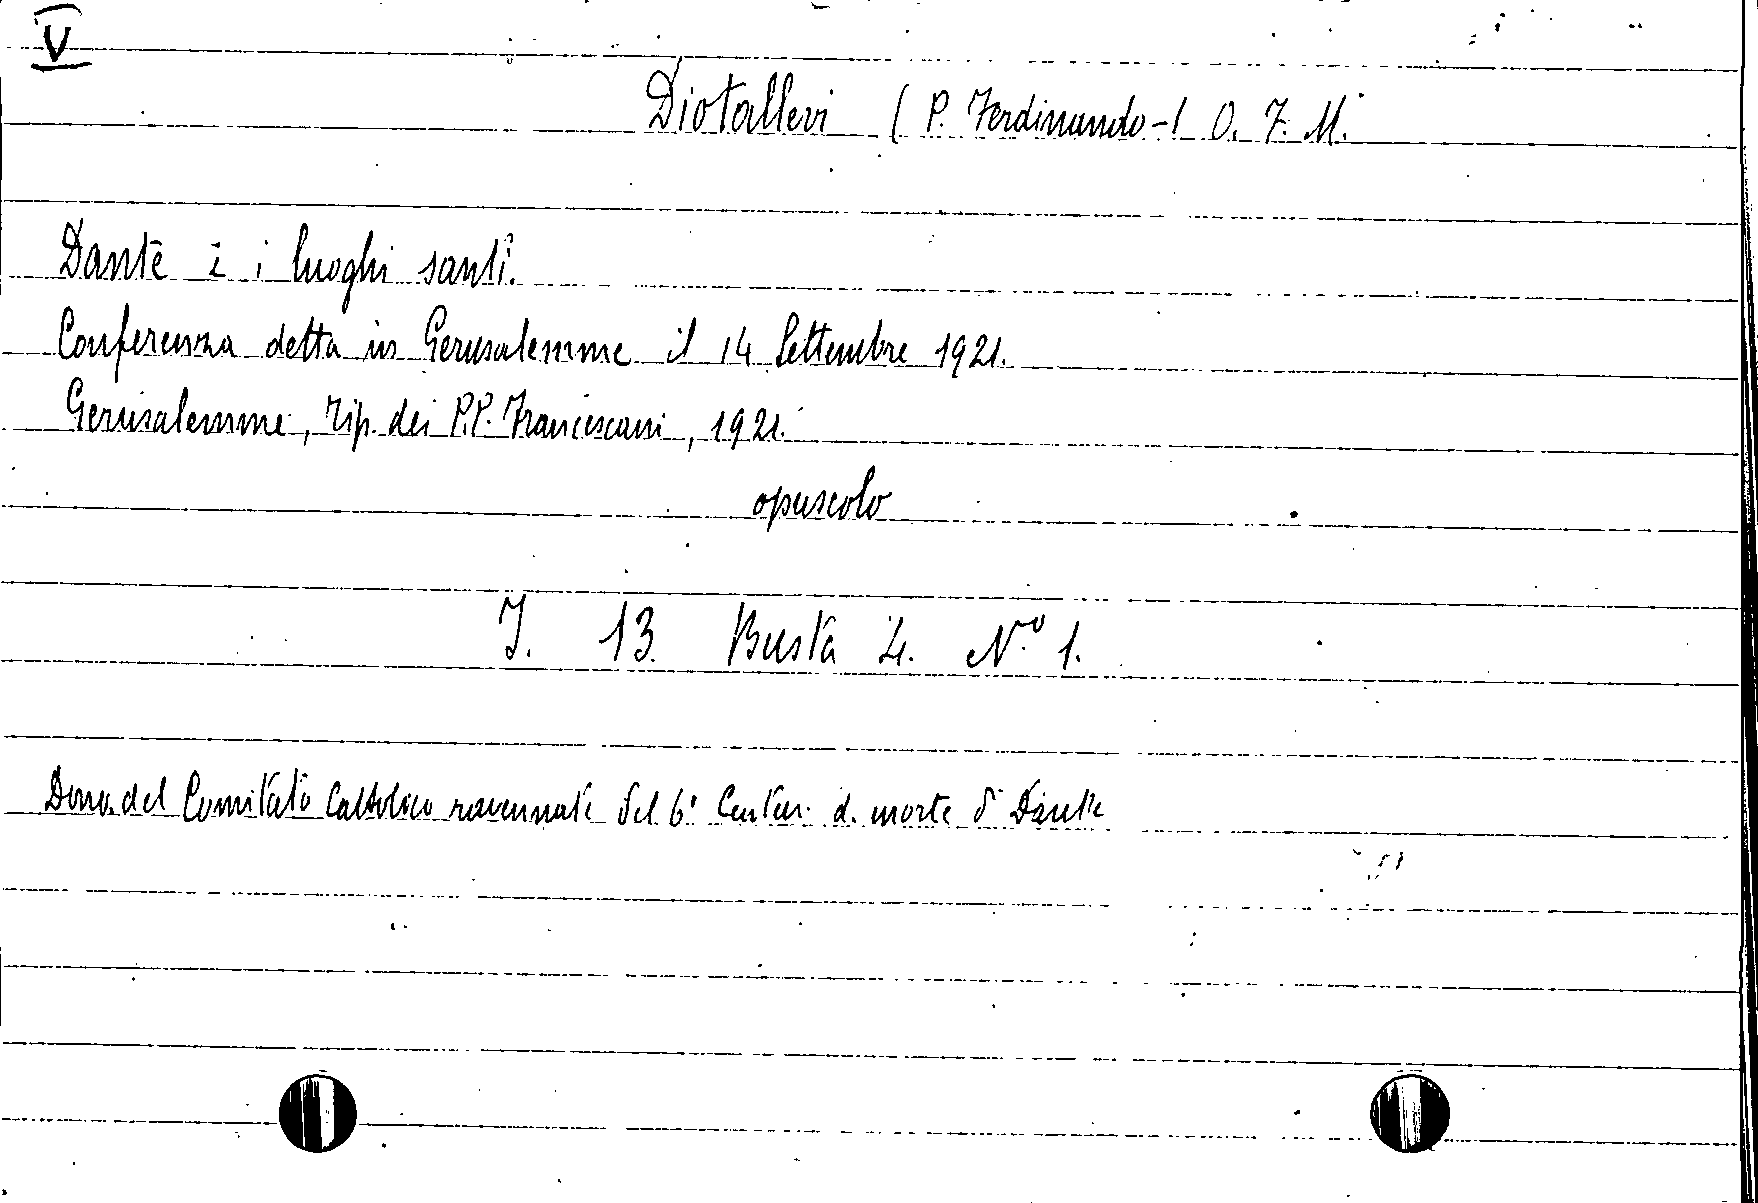 V
Diotallevi (P. Ferdinando-) O. F. M.
Dante e i luoghi santi.
Conferenza detta in Gerusalemme il 14 Settembre 1921.
Gerusalemme, Tip. dei P.P. Francescani, 1921.
opuscolo
I. 13. Busta 4. N.o 1.
Dono del Comitato Cattolico ravennate del 6° Centen. d. morte di Dante